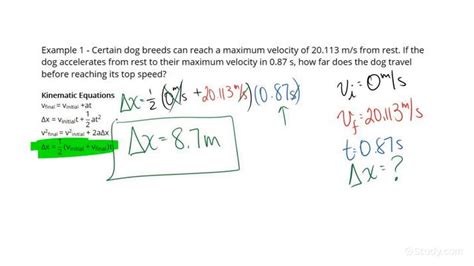 Example 1 - Certain dog breeds can reach a maximum velocity of 20.113 m/s from rest. If the
dog accelerates from rest to their maximum velocity in 0.87 s, how far does the dog travel
before reaching its top speed?
Kinematic Equations
v_final = v_initial +at
Δx = v_initial t + 1/2 at²
v²_final = v²_initial + 2aΔx
Δx = 1/2 (v_initial + v_final)t
Δx = 1/2 (0 m/s + 20.113 m/s)(0.87s)
Δx = 8.7m
v_i = 0 m/s
v_f = 20.113 m/s
t = 0.87s
Δx = ?
Study.com